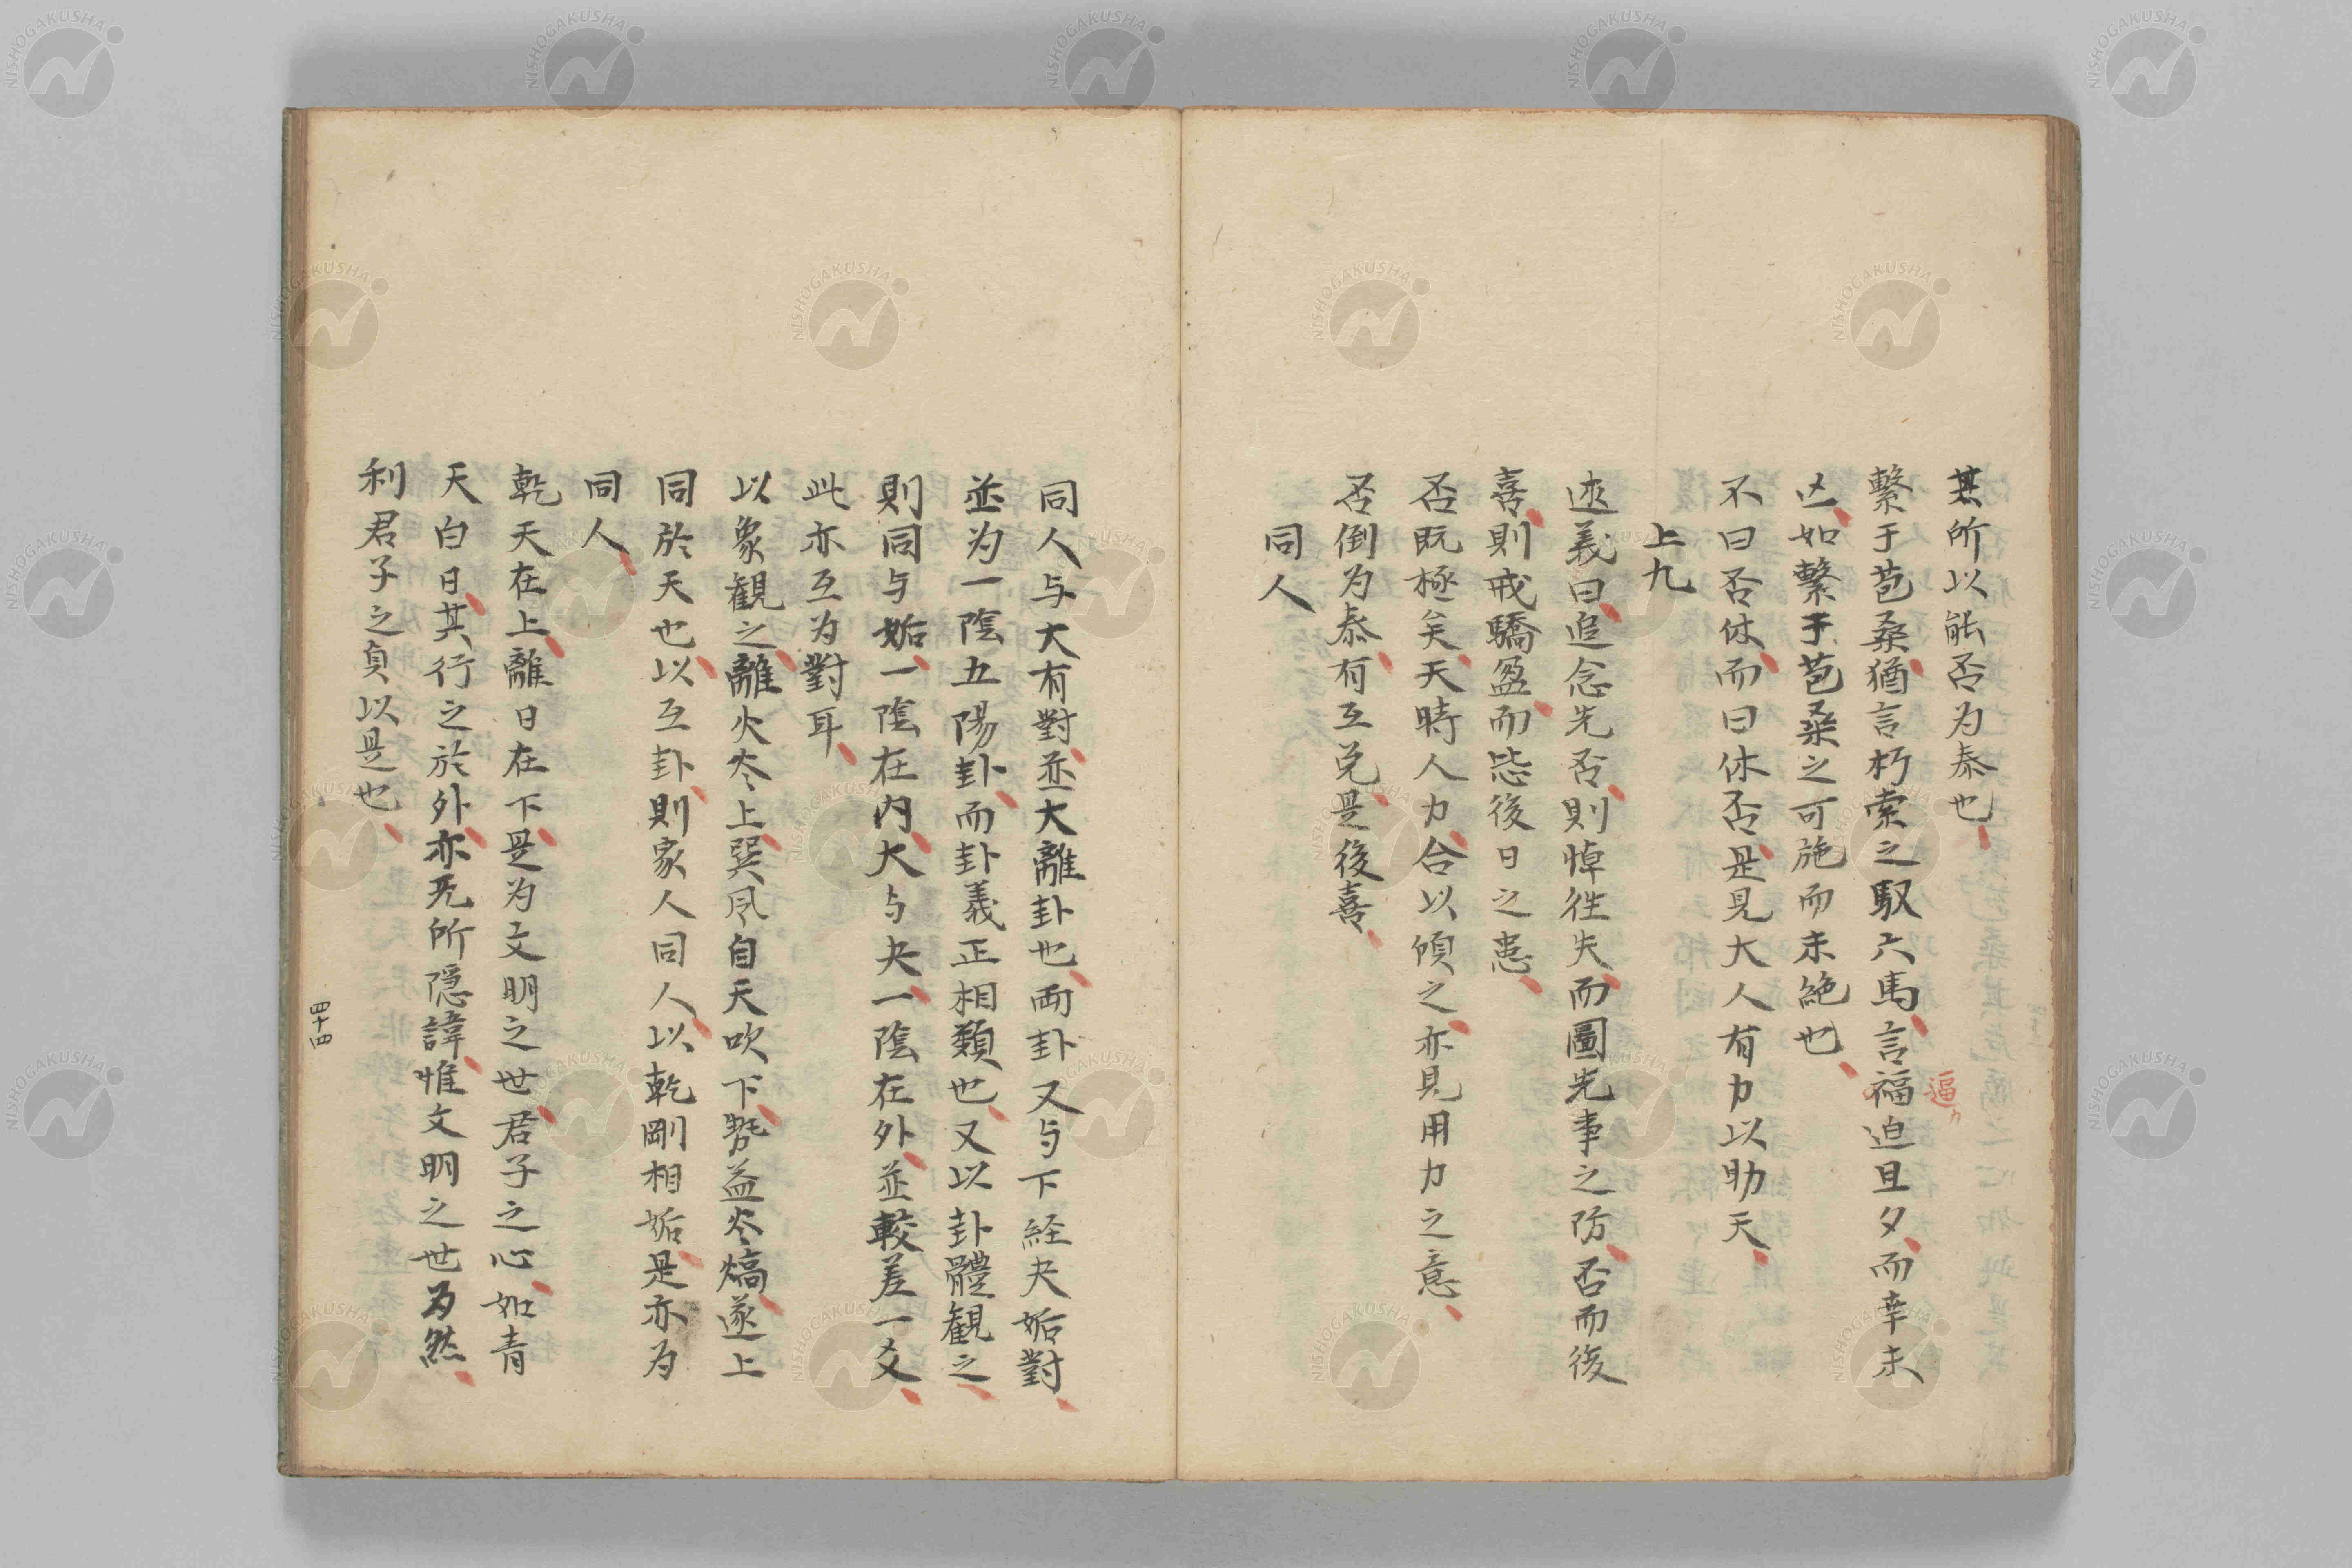 其所以能否为泰也
繫于苞桑猶言朽索之馭六馬言福迫旦夕而幸未
逼カ
亾如繫于苞桑之可施而未絶也
不曰否休而曰休否是見大人有力以助天
上九
述義曰追念先否則悼徃失而圖先事之防否而後
喜則戒驕盈而毖後日之患
否既極矣天時人力合以傾之亦見用力之意
否倒为泰有互兌是後喜
同人
同人与大有對並大離卦也両卦又与下経夬姤對
並为一陰五陽卦而卦義正相類也又以卦體観之
則同与姤一陰在内大与夬一陰在外並較差一爻
此亦互为對耳
以象観之離火炎上巽风自天吹下㔟益炎熇遂上
同於天也以互卦則家人同人以乾剛相姤是亦为
同人
乾天在上離日在下是为文明之世君子之心如青
天白日其行之於外亦无所隠諱惟文明之世为然
利君子之貞以是也
四十四
NISHOGAKUSHA